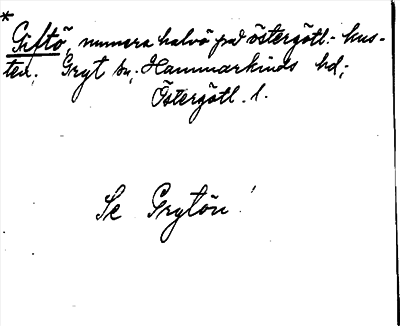 *
Giftö, numera halvö på östergötl. kus-
ten, Gryt sn, Hammarkinds hd,
Östergötl. l.
Se Grytön!